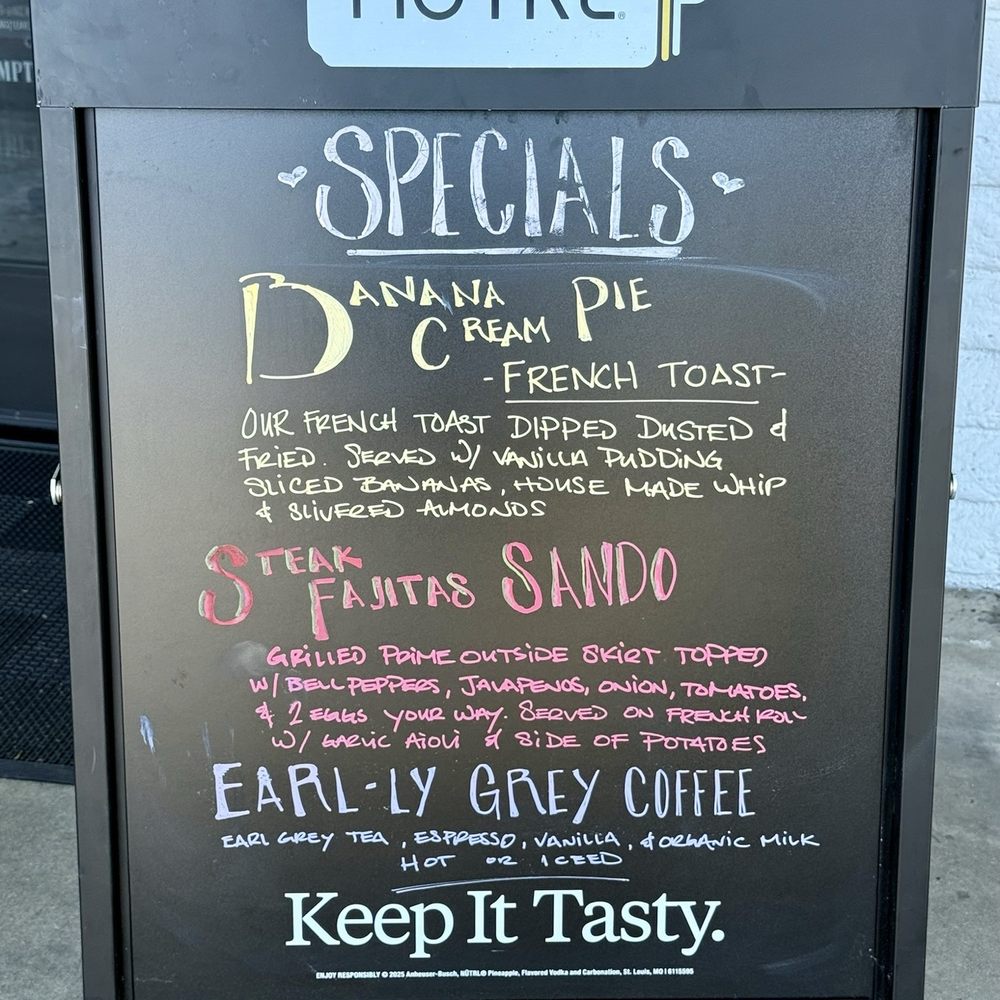 SPECIALS
BANANA CREAM PIE
-FRENCH TOAST-
OUR FRENCH TOAST DIPPED DUSTED &
FRIED. SERVED W/ VANILLA PUDDING
SLICED BANANAS, HOUSE MADE WHIP
& SLIVERED ALMONDS
STEAK FAJITAS SANDO
GRILLED PRIME OUTSIDE SKIRT TOPPED
W/ BELL PEPPERS, JALAPENOS, ONION, TOMATOES,
& 2 EGGS YOUR WAY. SERVED ON FRENCH ROLL
W/ GARLIC AIOLI & SIDE OF POTATOES
EARL-LY GREY COFFEE
EARL GREY TEA, ESPRESSO, VANILLA, & ORGANIC MILK
HOT OR ICED
Keep It Tasty.
ENJOY RESPONSIBLY © 2025 Anheuser-Busch, NÜTRL® Pineapple, Flavored Vodka and Carbonation, St. Louis, MO | 6115595